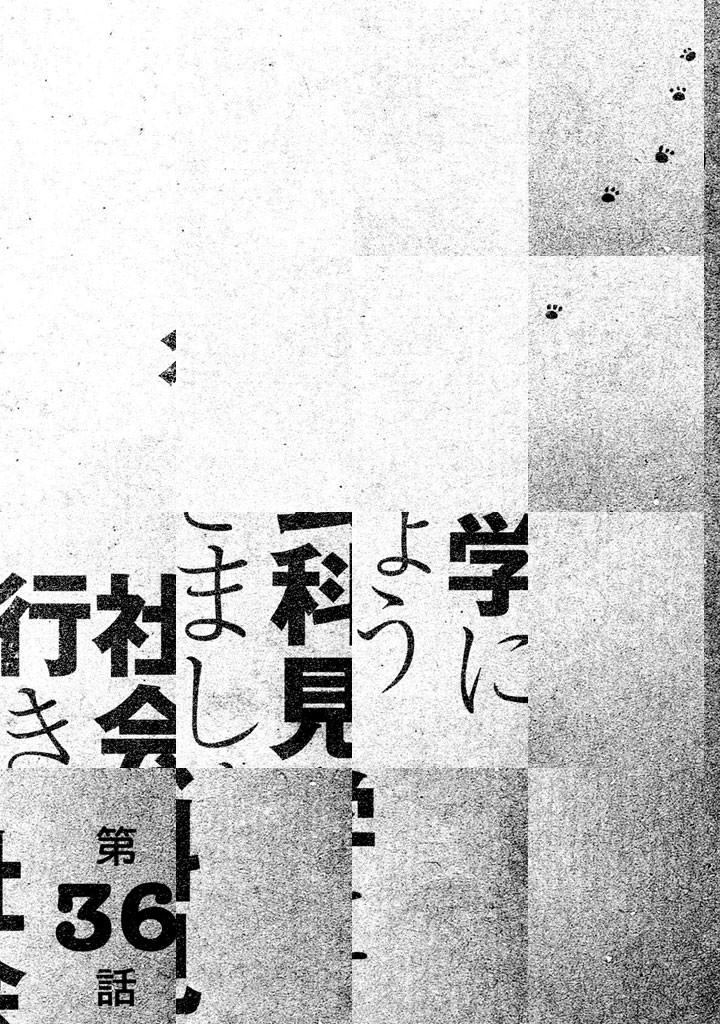 学に
ょう
科見
まし
社会
行き
第36話